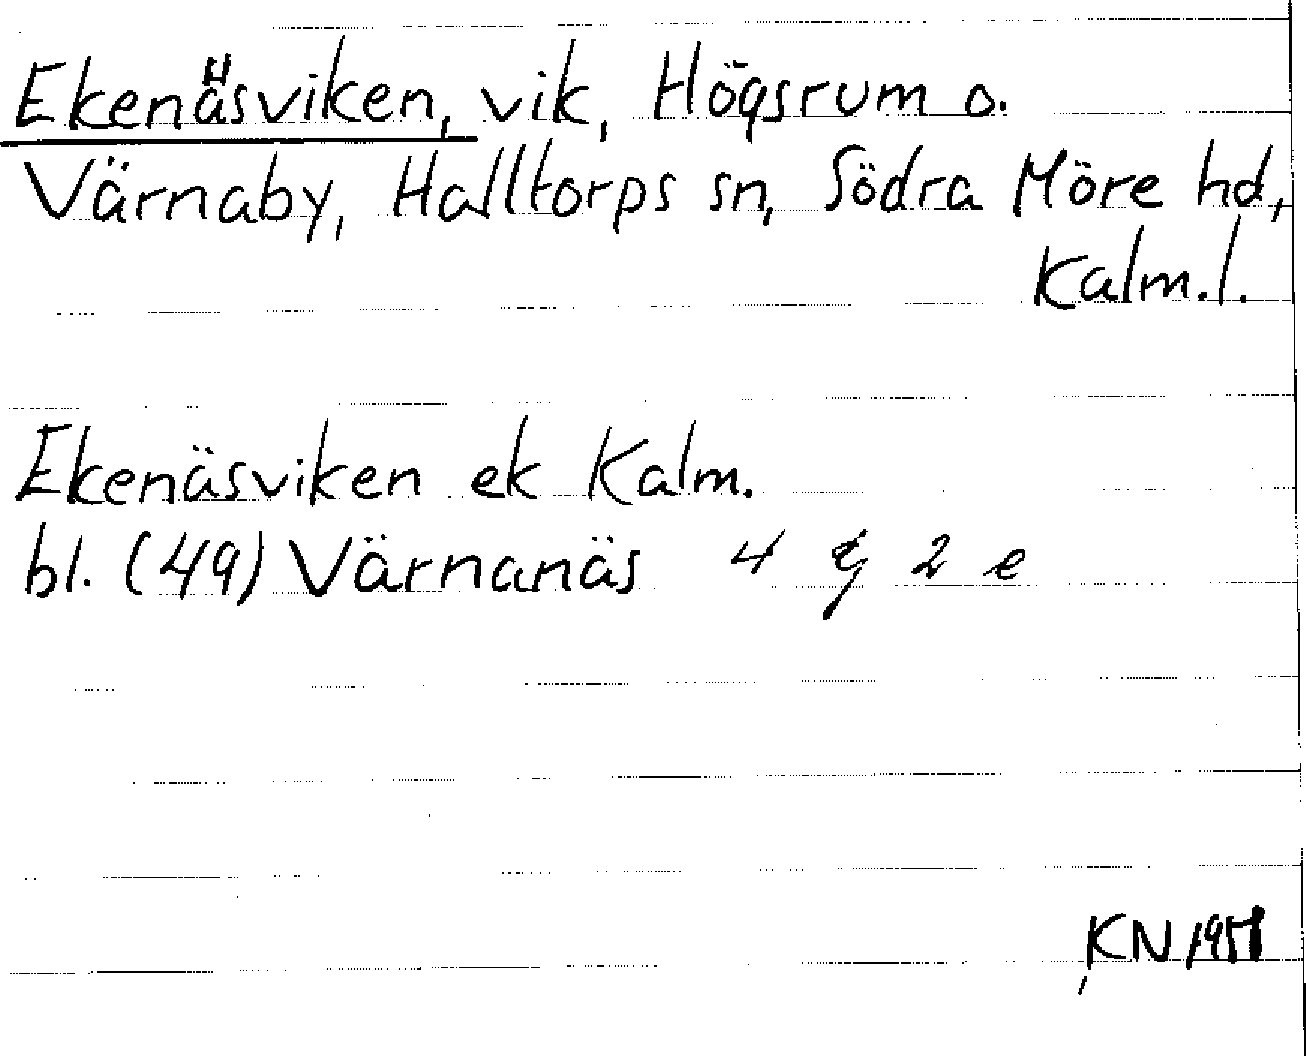 Ekenäsviken, vik, Högsrum o.
Värnaby, Halltorps sn, Södra Möre hd,
Kalm.l.
Ekenäsviken ek Kalm.
bl. (49) Värnanäs 4 G 2 e
KN